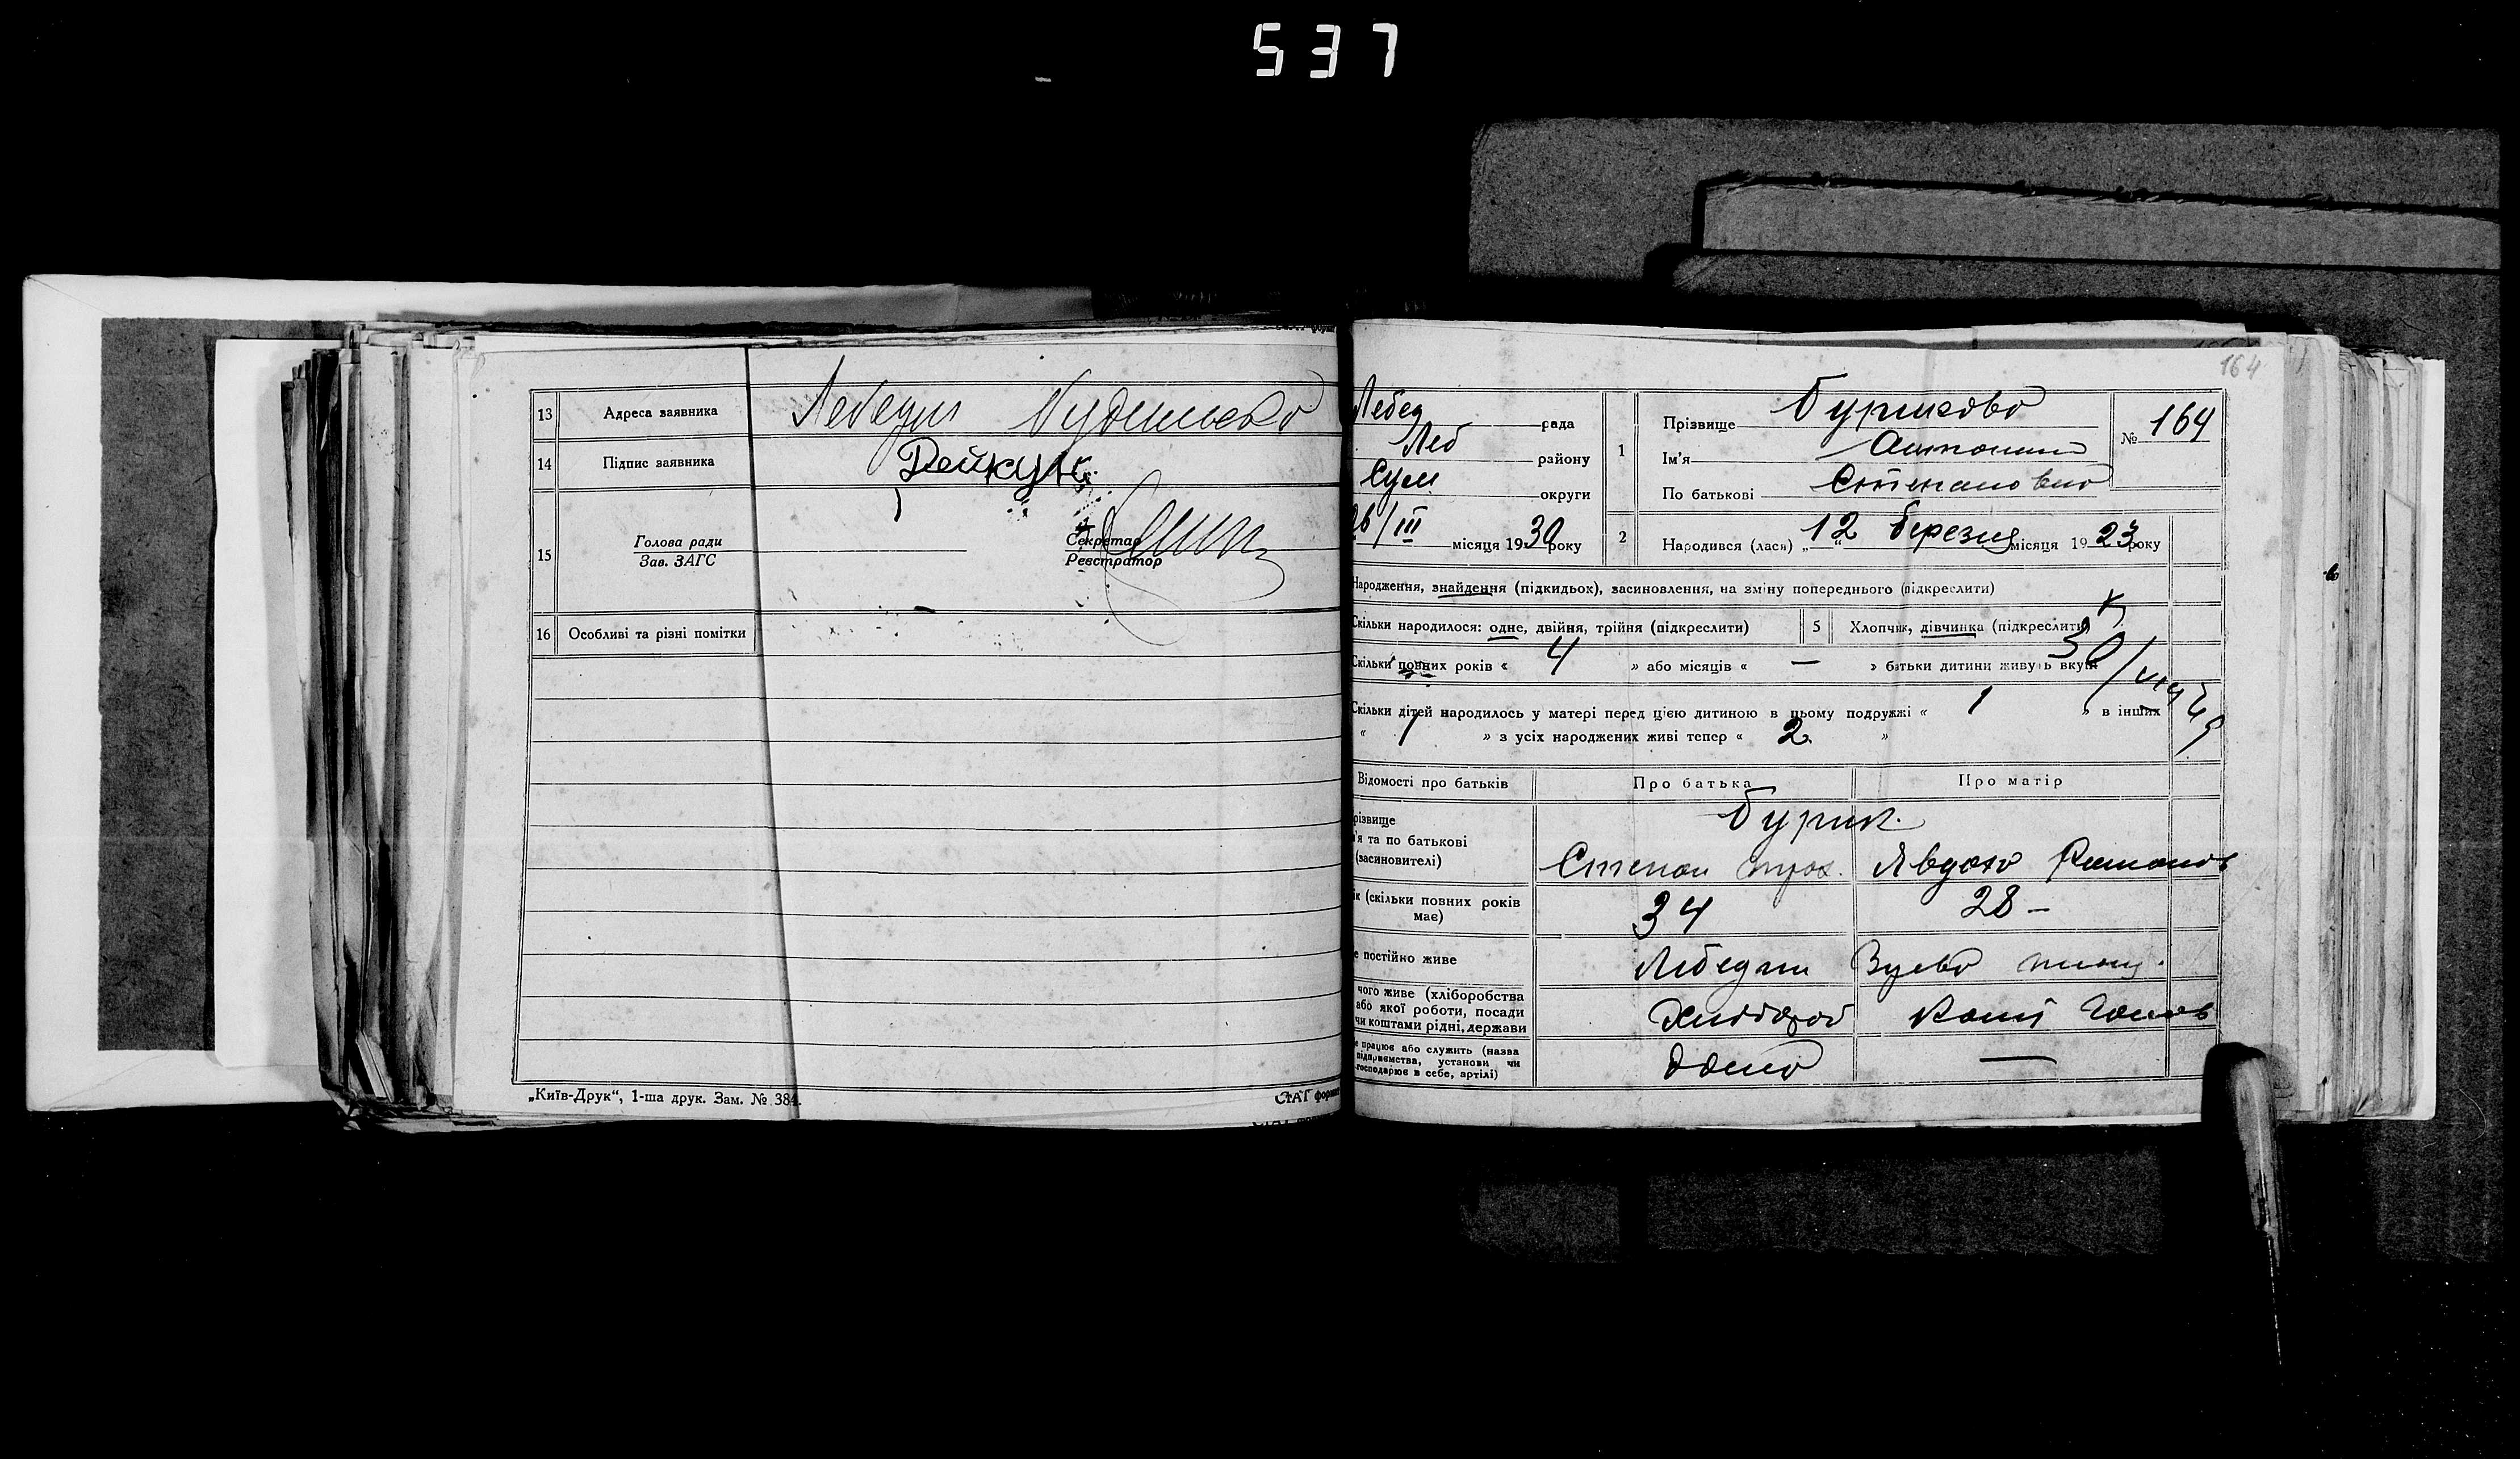 537
13 Адреса заявника Лебедин
14 Підпис заявника Дейкун
15 Голова ради
Зав. ЗАГС
Секретар
Реєстратор
16 Особливі та різні помітки
„Київ-Друк“, 1-ша друк. Зам. № 384.
СтАТ форма
164
Лебед рада
Леб району
Сум округи
26/III місяця 1930 року
1 Прізвище Бурикова № 164
Ім'я Антонина
По батькові Степановна
2 Народився (лась) „12“ березня місяця 1923 року
Народження, знайдення (підкидьок), засиновлення, на зміну попереднього (підкреслити)
Скільки народилося: одне, двійня, трійня (підкреслити) 5 Хлопчик, дівчинка (підкреслити)
Скільки повних років « 4 » або місяців « — » батьки дитини живуть вкупі
Скільки дітей народилось у матері перед цією дитиною в цьому подружжі « 1 » в інших
« 1 » з усіх народжених живі тепер « 2 »
Відомості про батьків Про батька Про матір
різвище
'я та по батькові
(засиновителі)
Бурик
Степан Явдоха Романов
ік (скільки повних років має) 34 28 —
е постійно живе Лебедин
чого живе (хліборобства
або якої роботи, посади
чи коштами рідні, держави
Хлібороб
е працює або служить (назва
підприємства, установи чи
господарює в себе, артілі)
вдома —